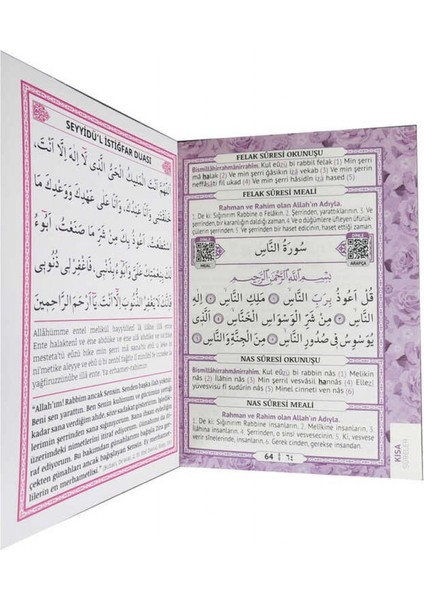 SEYYİDÜ'L İSTİĞFAR DUASI
اَللّٰهُمَّ اَنْتَ الْمَلِيكُ الْحَيُّ الَّذِى لَا اِلٰهَ اِلَّا اَنْتَ،
خَلَقْتَنِى وَاَنَا عَبْدُكَ وَاَنَا عَلٰى عَهْدِكَ وَوَعْدِكَ مَا
اسْتَطَعْتُ، اَعُوذُ بِكَ مِنْ شَرِّ مَا صَنَعْتُ، اَبُوءُ
لَكَ بِنِعْمَتِكَ عَلَىَّ وَاَبُوءُ بِذَنْبِى، فَاغْفِرْلِى ذُنُوبِى
فَاِنَّهُ لَا يَغْفِرُ الذُّنُوبَ اِلَّا اَنْتَ، يَا اَرْحَمَ الرَّاحِمِينَ
Allâhümme entel melikül hayyüllezî lâ ilâhe illâ ente
Ente halaktenî ve ene abdüke ve ene
mesteta'tü eûzü bike min şerri mâ
ni'metike aleyye ve ebû
yağfiruzzünûbe illâ ente. Yâ erhamer-rahimîn.
"Allah'ım! Rabbim ancak Sensin. Senden başka ilah yoktur.
Beni sen yarattın. Ben Senin kulunum ve gücümün yettiği
kadar sana verdiğim ahde, söze sadakat gösteririm. İşledik-
lerimin şerrinden sana sığınıyorum. Bana ihsan eylediğin
üzerimdeki nimetlerini itiraf ediyorum. Günahlarımı da iti-
raf ediyorum. Bu hakkımdan günahlarımı bağışla Zira ger-
çekten günahları ancak bağışlayan Sensin. Ey merhamet-
lilerin en merhametlisi."
FELAK SÛRESİ OKUNUŞU
Bismillâhirrahmânirrahîm. Kul eûzü bi rabbil felak (1) Min şerri
mâ halak (2) Ve min şerri ğâsikın izâ vekab (3) Ve min şerrin
neffâsâti fil ukad (4) Ve min şerri hâsidin izâ hased (5)
FELAK SÛRESİ MEALİ
Rahman ve Rahim olan Allah'ın Adıyla.
1. De ki: Sığınırım Rabbine o Felakın. 2. Şerrinden, yarattıklarının. 3. Ve
şerrinden, bir karanlığın daldığı zaman. 4. Ve o düğümlere üfleyen üfürük-
çülerin şerrinden. 5. Ve şerrinden bir haset edicinin, haset ettiği zaman.
DİNLE
MEAL
سُورَةُ النَّاسِ
DİNLE
ARAPÇA
بِسْمِ اللّٰهِ الرَّحْمٰنِ الرَّحِيمِ
قُلْ اَعُوذُ بِرَبِّ النَّاسِ ۝ مَلِكِ النَّاسِ ۝ اِلٰهِ
النَّاسِ ۝ مِنْ شَرِّ الْوَسْوَاسِ الْخَنَّاسِ ۝ اَلَّذِى
يُوَسْوِسُ فِى صُدُورِ النَّاسِ ۝ مِنَ الْجِنَّةِ وَالنَّاسِ ۝
NAS SÛRESİ OKUNUŞU
Bismillâhirrahmânirrahîm. Kul eûzü bi rabbin nâs (1) Melikin
nâs (2) İlâhin nâs (3) Min şerril vesvâsil hannâs (4) Ellezî
yüvesvisü fî sudûrin nâs (5) Minel cinneti ven nâs (6)
NAS SÛRESİ MEALİ
Rahman ve Rahim olan Allah'ın Adıyla.
1. De ki: Sığınırım Rabbine insanların, 2. Melikine insanların, 3.
ilahına insanların. 4. Şerrinden, o sinsi vesvesecinin. 5. Ki, vesvese
verir sinelerinde, insanların. 6. Gerek cinden, gerekse insandan.
64 ٦٤
KISA
SURELER